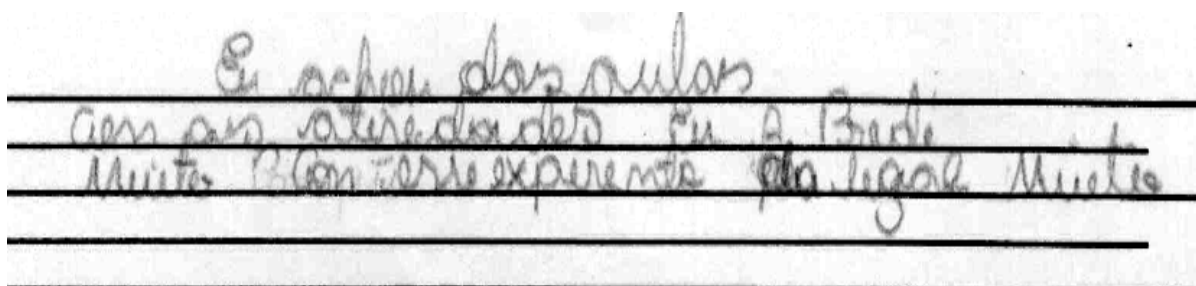 Eu achei das aulas
com as atividades Eu
Muito com este experimento da legal Muito